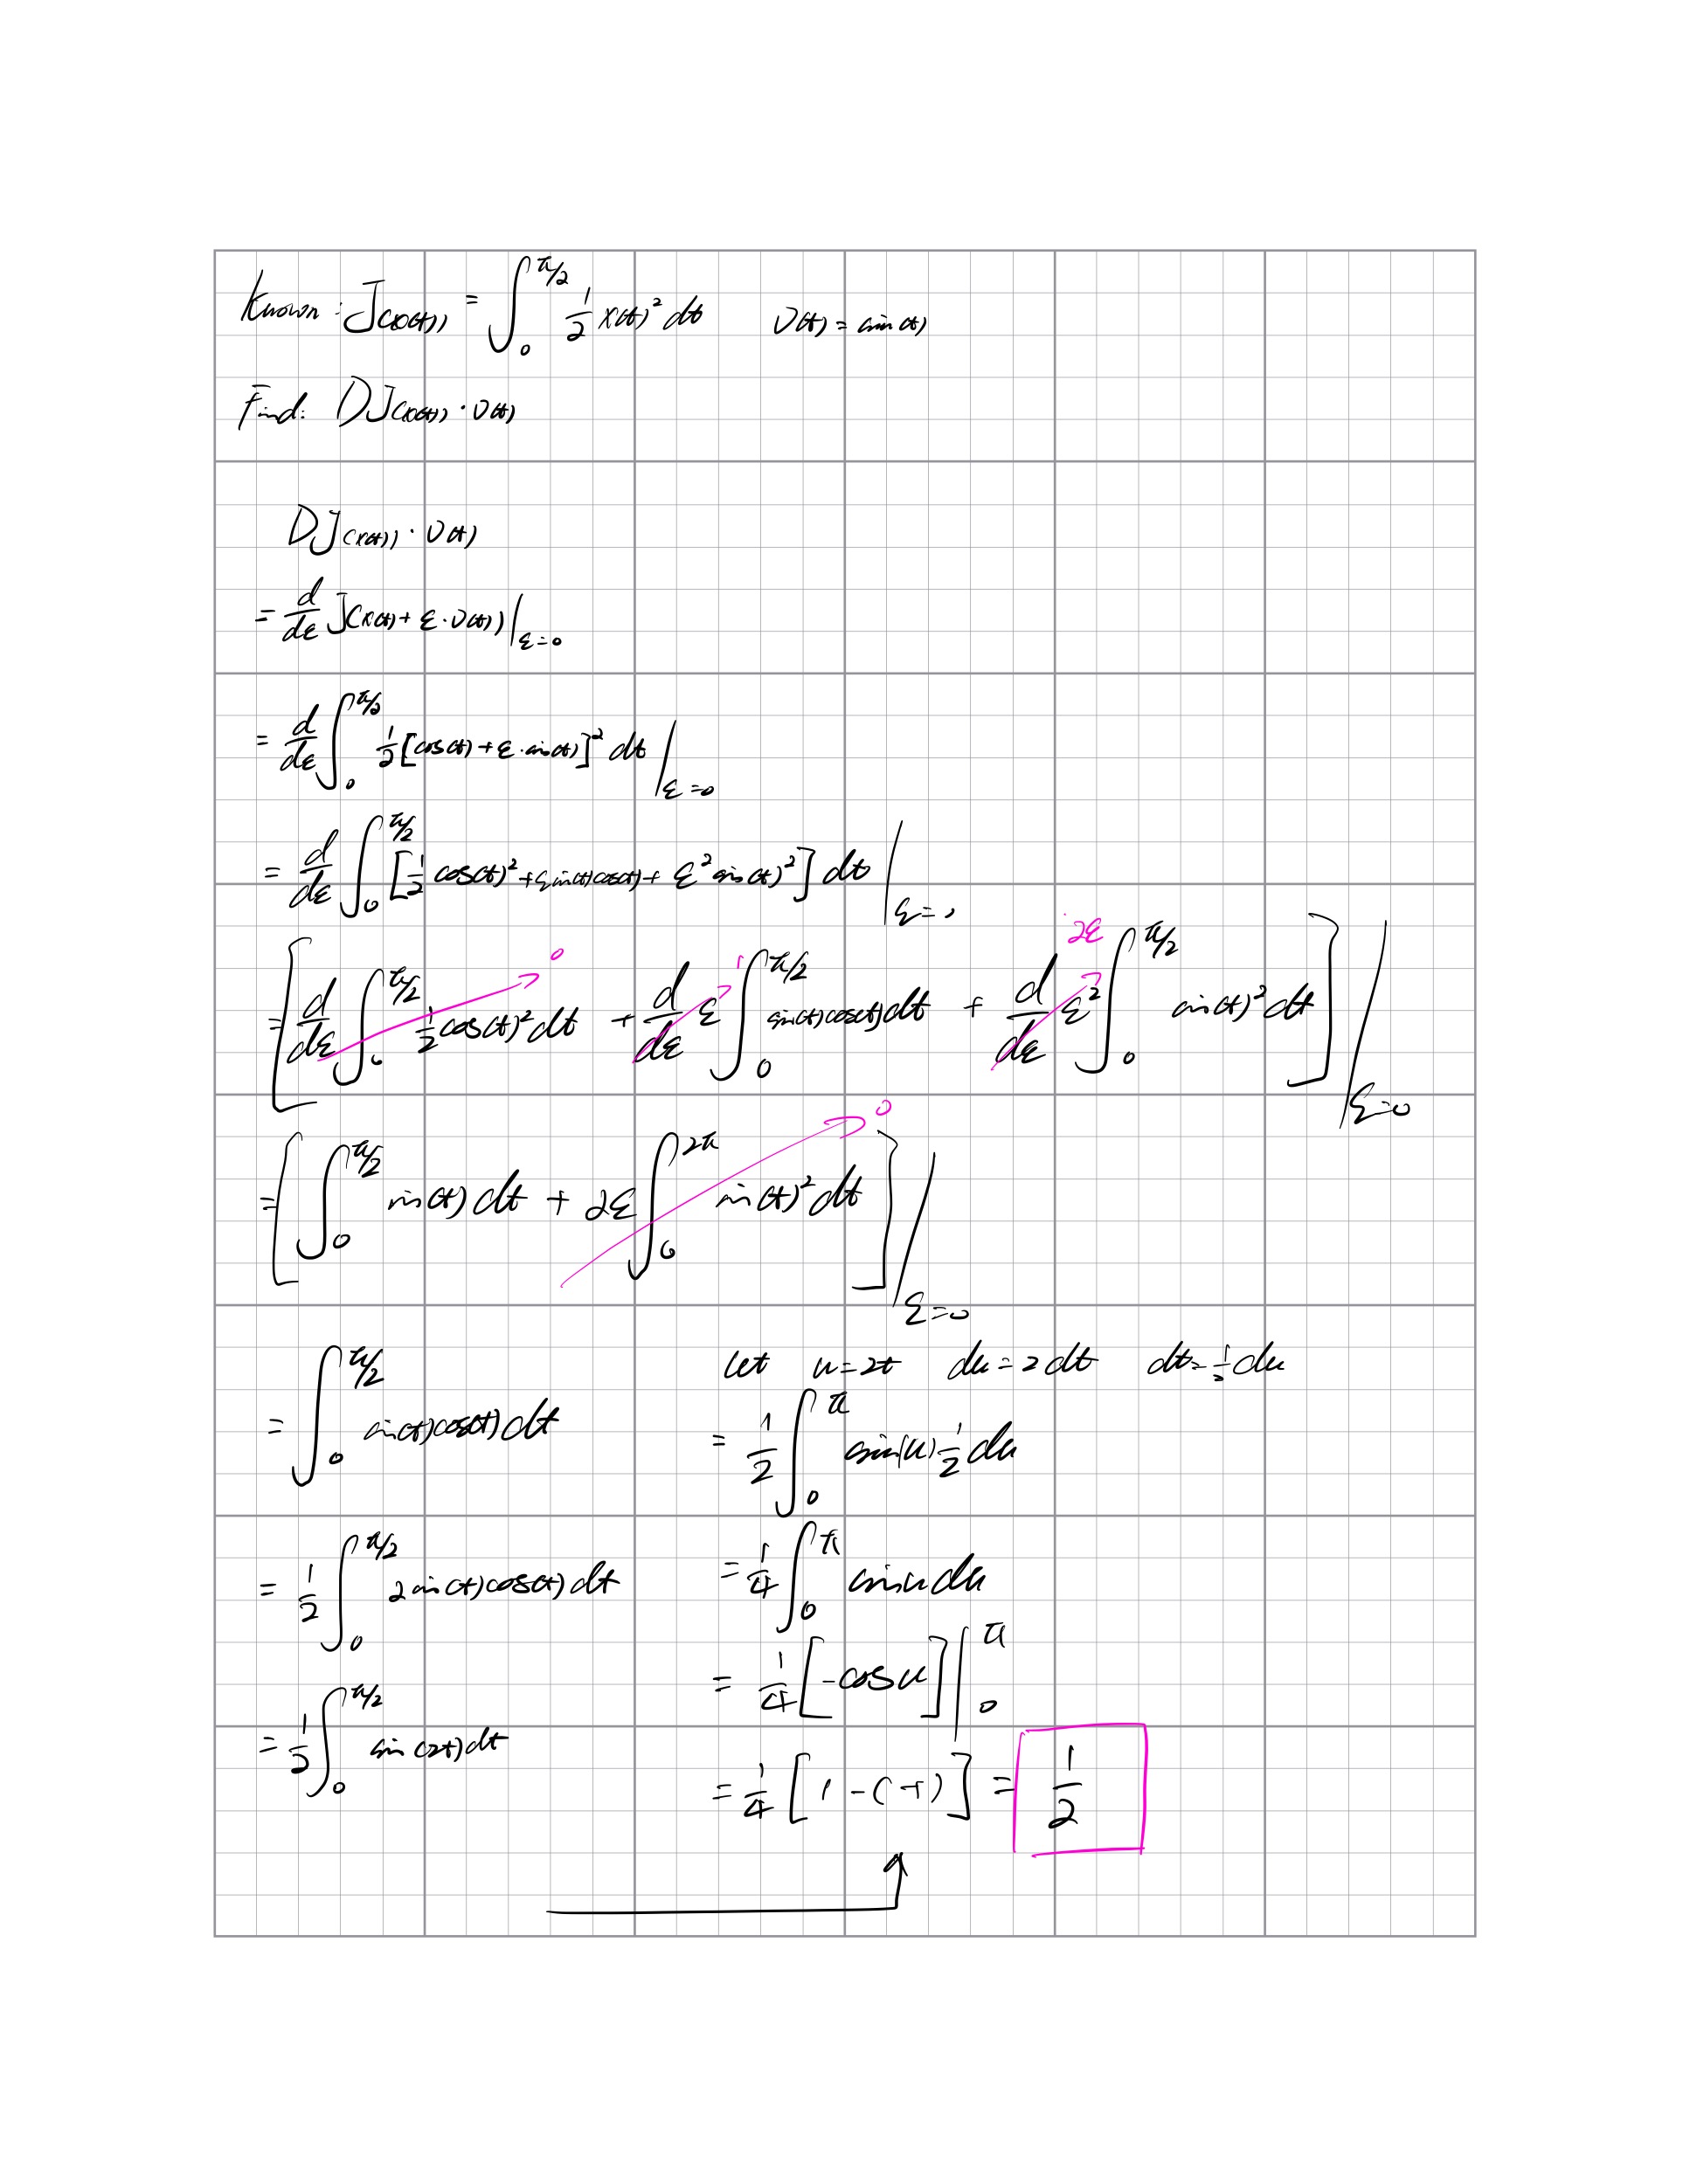 Known: J(x(t)) = ∫₀^{π/2} 1/2 x(t)² dt   v(t) = sin(t)
Find: DJ(x(t)) · v(t)
DJ(x(t)) · v(t)
= d/dε J(x(t) + ε · v(t)) |_{ε=0}
= d/dε ∫₀^{π/2} 1/2 [cos(t) + ε · sin(t)]² dt |_{ε=0}
= d/dε ∫₀^{π/2} [1/2 cos(t)² + ε sin(t) cos(t) + ε² sin(t)²] dt |_{ε=0}
0   1   2ε
= [d/dε ∫₀^{π/2} 1/2 cos(t)² dt + d/dε ε ∫₀^{π/2} sin(t) cos(t) dt + d/dε ε² ∫₀^{π/2} sin(t)² dt] |_{ε=0}
0
= [∫₀^{π/2} sin(t) dt + 2ε ∫₀^{2π} sin(t)² dt] |_{ε=0}
= ∫₀^{π/2} sin(t) cos(t) dt
= 1/2 ∫₀^{π/2} 2 sin(t) cos(t) dt
= 1/2 ∫₀^{π/2} sin(2t) dt
let u = 2t   du = 2 dt   dt = 1/2 du
= 1/2 ∫₀^{π} sin(u) 1/2 du
= 1/4 ∫₀^{π} sin u du
= 1/4 [-cos u] |₀^{π}
= 1/4 [1 - (-1)] = 1/2